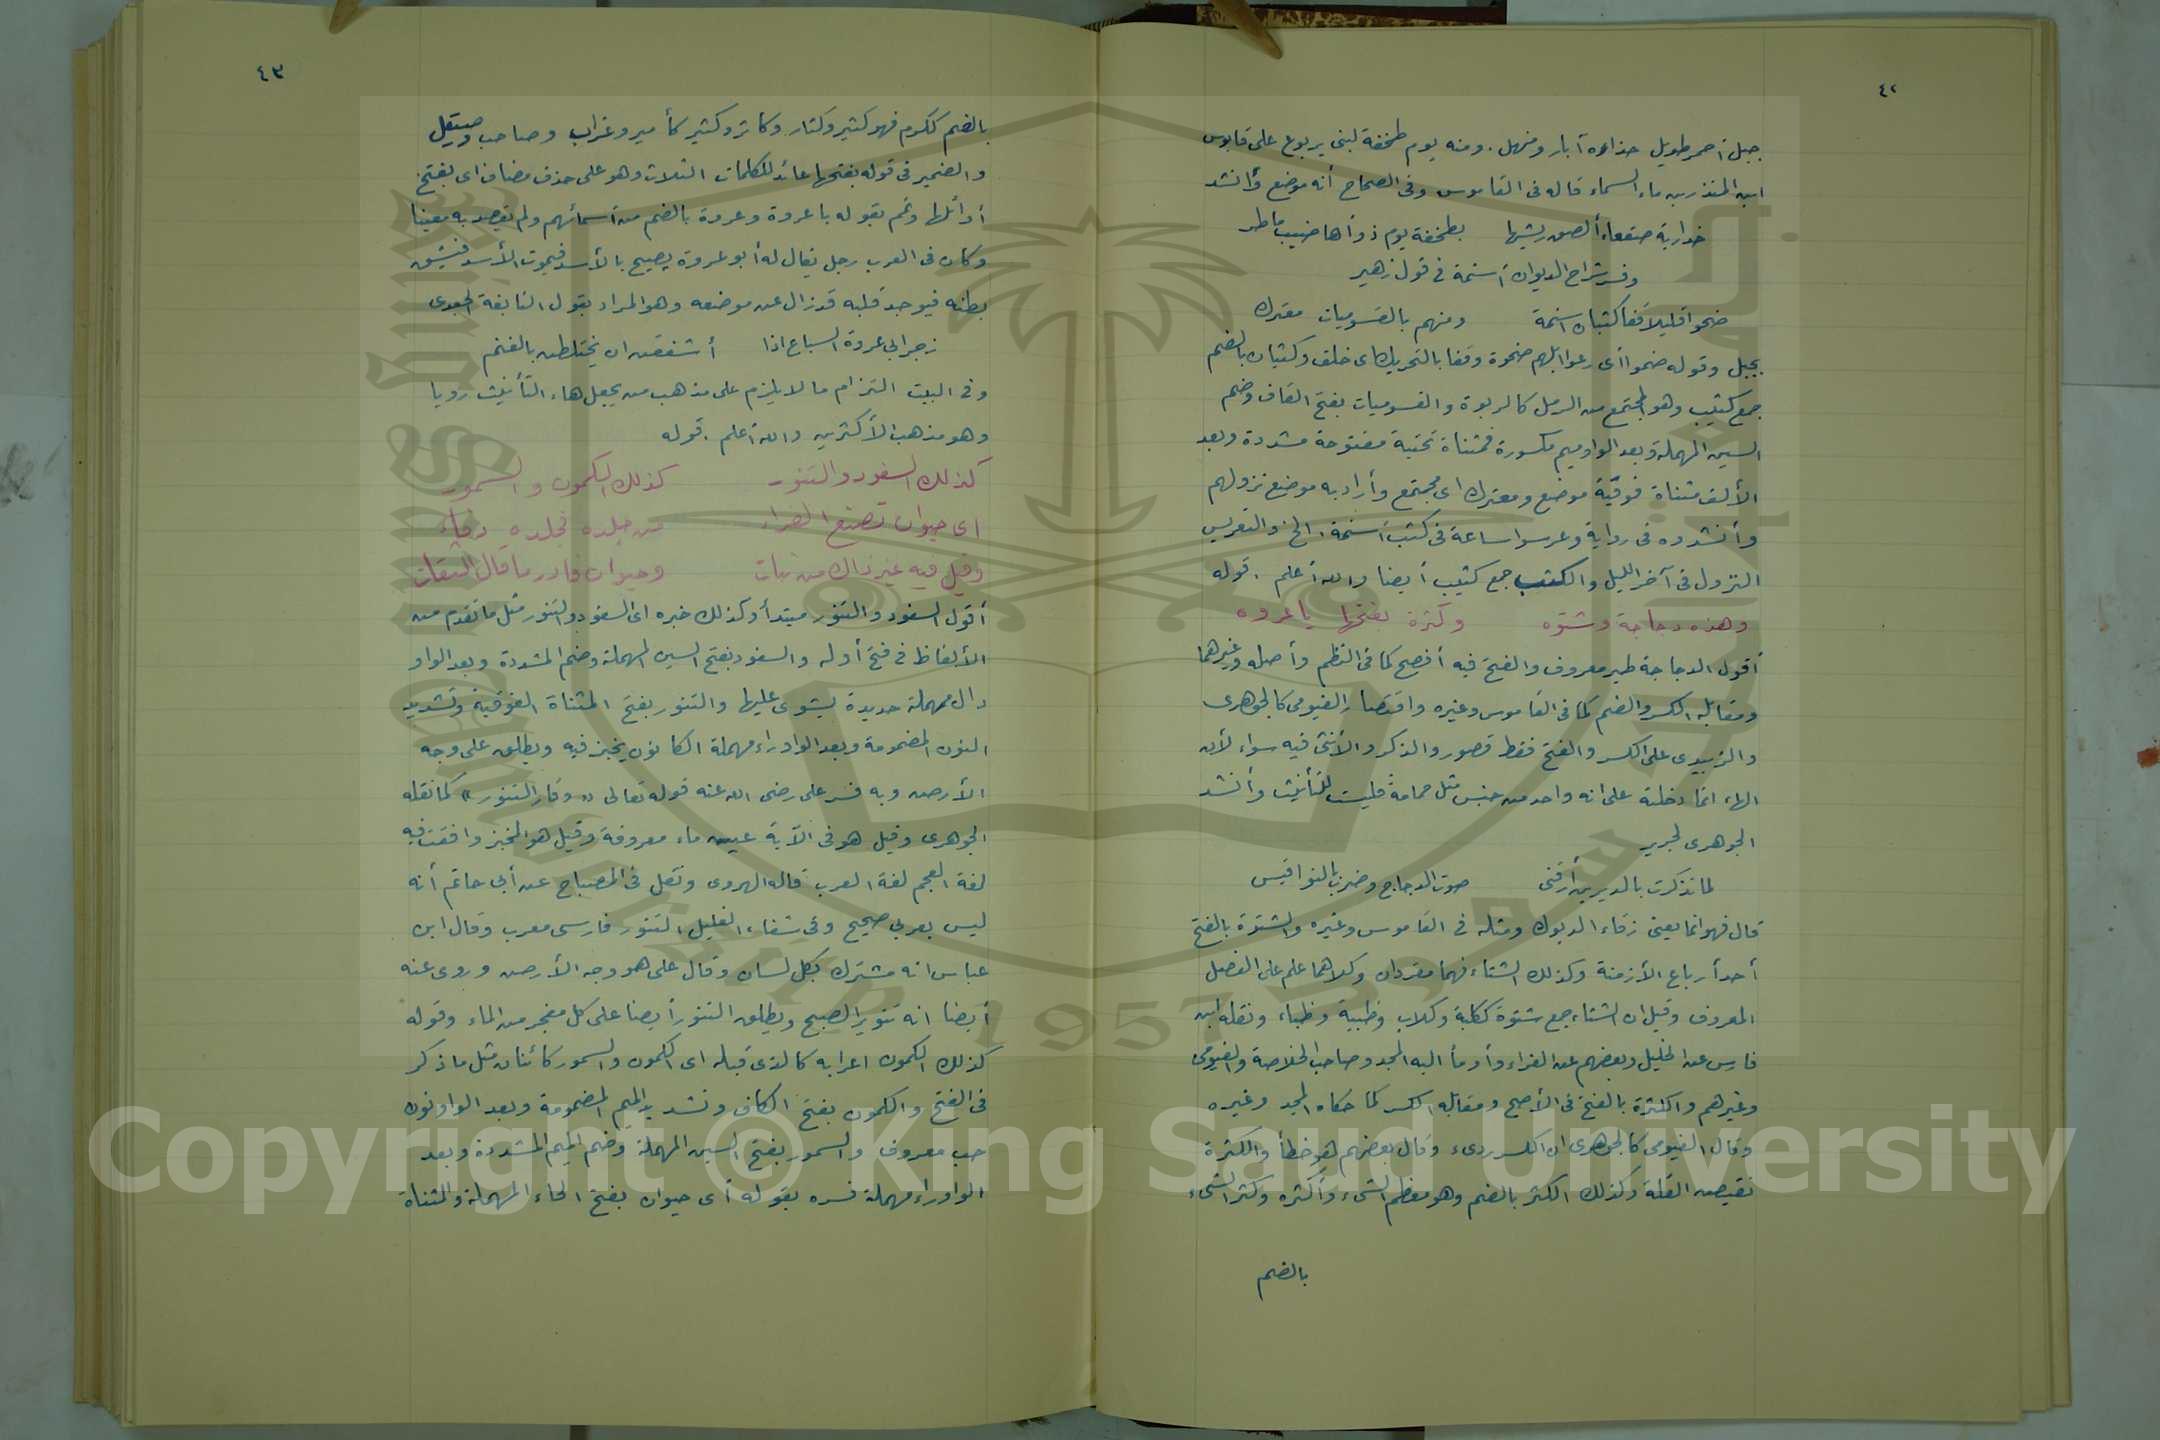 ٤٢
جبل أحمر طويل حذاءه آبار ومنهل. ومنه يوم طخفة لبنى يربوع على قابوس
ابن المنذر بن ماء السماء قاله فى القاموس وفى الصحاح أنه موضع وأنشد
خدارية صقعاء ألصق ريشها بطخفة يوم ذو أهاضيب ماطر
وفسر شراح الديوان أسنمة فى قول زهير
ضحوا قليلا قفا كثبان اسنمة ومنهم بالقسوميات معترك
بجبل وقوله ضحوا أى رعوا ابلهم ضحوة وقفا بالتحريك اى خلف وكثبان بالضم
جمع كثيب وهو المجتمع من الرمل كالربوة والقسوميات بفتح القاف وضم
السين المهملة وبعد الواو ميم مكسورة فمثناة تحتية مفتوحة مشددة وبعد
الألف مثناة فوقية موضع ومعترك اى مجتمع وأراد به موضع نزولهم
وأنشدوه فى رواية وعرسوا ساعة فى كثب أسنمة. الخ والتعريس
النزول فى آخر الليل والكثب جمع كثيب أيضا والله أعلم. قوله
وهذه دجاجة وشتوه وكثرة بفتحها يا عروه
أقول الدجاجة طير معروف والفتح فيه أفصح كما فى النظم وأصله وغيرهما
ومقابله الكسر والضم كما فى القاموس وغيره واقتصار الفيومى كالجوهرى
والزبيدى على الكسر والفتح فقط قصور والذكر والأنثى فيه سواء لأن
الهاء انما دخلته على انه واحد من جنس مثل حمامة فليست للتأنيث وأنشد
الجوهرى لجرير
لما تذكرت بالديرين أرقنى صوت الدجاج وضرب بالنواقيس
قال فهو انما يعنى زقاء الديوك ومثله فى القاموس وغيره والشتوة بالفتح
أحد أرباع الأزمنة وكذلك الشتاء فهما مفردان وكلاهما علم على الفصل
المعروف وقيل ان الشتاء جمع شتوة ككلبة وكلاب وظبية وظباء ونقله ابن
فارس عن الخليل وبعضهم عن الفراء وأومأ اليه المجد وصاحب الخلاصة والفيومى
وغيرهم والكثرة بالفتح فى الأصح ومقابله الكسر كما حكاه المجد وغيره
وقال الفيومى كالجوهرى ان الكسر ردىء وقال بعضهم هو خطأ والكثرة
نقيض القلة وكذلك الكثر بالضم وهو معظم الشىء وأكثره وكثر الشىء
بالضم
٤٣
بالضم ككرم فهو كثير وكثار وكاثر وكثير كأمير وغراب وصاحب وصيقل
والضمير فى قوله بفتحها عائد للكلمات الثلاث وهو على حذف مضاف اى بفتح
أوائلها وتمم بقوله يا عروة وعروة بالضم من أسمائهم ولم يقصد به معينا
وكان فى العرب رجل يقال له أبو عروة يصيح بالأسد فيموت الأسد فيشق
بطنه فيوجد قلبه قد زال عن موضعه وهو المراد بقول النابغة الجعدى
زجر ابى عروة السباع اذا أشفقن ان يختلطن بالغنم
وفى البيت التزام مالا يلزم على مذهب من يجعل هاء التأنيث رويا
وهو مذهب الأكثرين والله أعلم. قوله
كذلك السفود والتنور كذلك الكمون والسمور
اى حيوان تصنع الفراء من جلده فجلده دفاء
وقيل فيه غير ذاك من نبات وحيوان نادر ما قال الثقات
أقول السفود والتنور مبتدأ وكذلك خبره اى السفود والتنور مثل ما تقدم من
الألفاظ فى فتح أوله والسفود بفتح السين المهملة وضم المشددة وبعد الواو
دال مهملة حديدة يشوى عليها والتنور بفتح المثناة الفوقية وتشديد
النون المضمومة وبعد الواو راء مهملة الكانون يخبز فيه ويطلق على وجه
الأرض وبه فسر على رضى الله عنه قوله تعالى «وفار التنور» كما نقله
الجوهرى وقيل هو فى الآية عين ماء معروفة وقيل هو المخبز وافقت فيه
لغة العجم لغة العرب قاله الهروى ونقل فى المصباح عن أبى حاتم أنه
ليس بعربى صحيح وفى شفاء الغليل التنور فارسى معرب وقال ابن
عباس انه مشترك بكل لسان وقال على هو وجه الأرض وروى عنه
أيضا انه تنوير الصبح ويطلق التنور أيضا على كل مفجر من الماء وقوله
كذلك الكمون اعرابه كالذى قبله اى الكمون والسمور كائنان مثل ما ذكر
فى الفتح والكمون بفتح الكاف وتشديد الميم المضمومة وبعد الواو نون
حب معروف والسمور بفتح السين المهملة وضم الميم المشددة وبعد
الواو راء مهملة فسره بقوله أى حيوان بفتح الحاء المهملة والمثناة
Copyright © King Saud University
1957